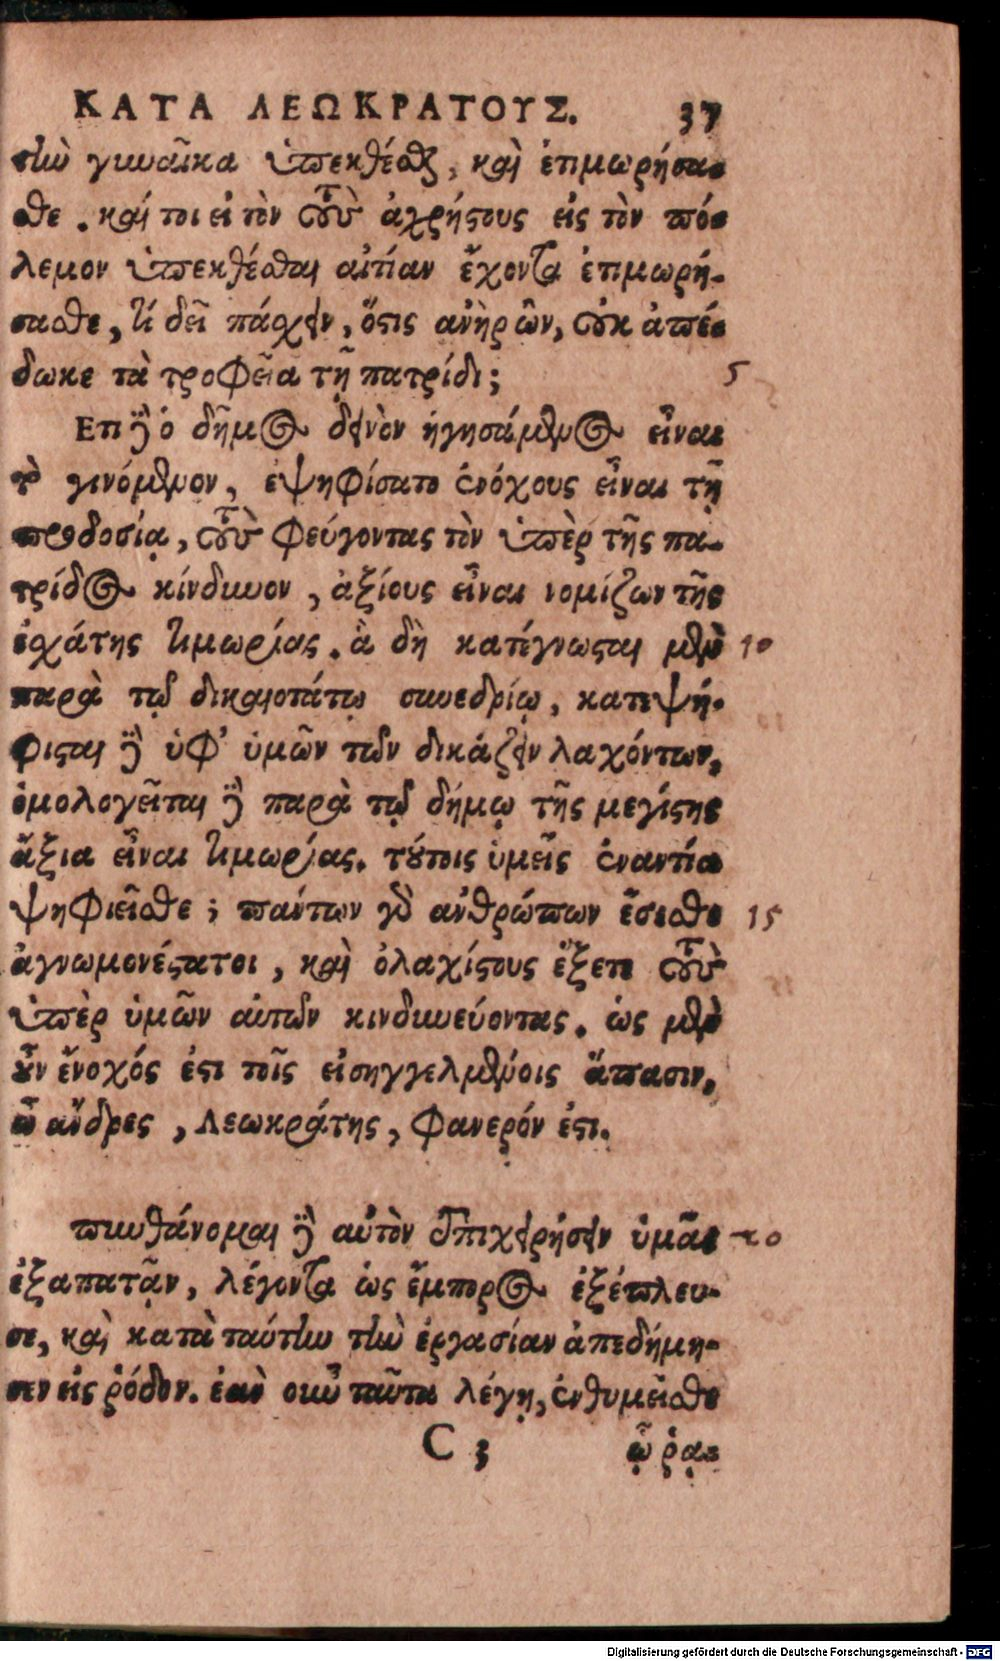 ΚΑΤΑ ΛΕΩΚΡΑΤΟΥΣ. 37
τὴν γυναῖκα ὑπεκθέσθαι, καὶ ἐτιμωρήσα-
σθε. καί τοι εἰ τὸν τοὺς ἀχρήστους εἰς τὸν πό-
λεμον ὑπεκθέσθαι αἰτίαν ἔχοντα ἐτιμωρή-
σασθε, τί δεῖ πάσχειν, ὅστις ἀνὴρ ὢν, οὐκ ἀπέ-
δωκε τὰ τροφεῖα τῇ πατρίδι; 5
Ετι δὲ ὁ δῆμος δεινὸν ἡγησάμενος εἶναι
τὸ γινόμενον, ἐψηφίσατο ἐνόχους εἶναι τῇ
προδοσίᾳ, τοὺς φεύγοντας τὸν ὑπὲρ τῆς πα-
τρίδος κίνδυνον, ἀξίους εἶναι νομίζων τῆς
ἐσχάτης τιμωρίας. ἃ δὴ κατέγνωσται μὲν 10
παρὰ τῷ δικαιοτάτῳ συνεδρίῳ, κατεψή-
φισται δὲ ὑφ' ὑμῶν τῶν δικάζειν λαχόντων,
ὁμολογεῖται δὲ παρὰ τῷ δήμῳ τῆς μεγίστης
ἄξια εἶναι τιμωρίας. τούτοις ὑμεῖς ἐναντία
ψηφιεῖσθε; πάντων γὰρ ἀνθρώπων ἔσεσθε 15
ἀγνωμονέστατοι, καὶ ὀλαχίστους ἕξετε τοὺς
ὑπὲρ ὑμῶν αὐτῶν κινδυνεύοντας. ὡς μὲν
οὖν ἔνοχός ἐστι τοῖς εἰσηγγελμένοις ἅπασιν,
ὦ ἄνδρες, Λεωκράτης, φανερόν ἐστι.
πυνθάνομαι δὲ αὐτὸν ἐπιχειρήσειν ὑμᾶς 20
ἐξαπατᾷν, λέγοντα ὡς ἔμπορος ἐξέπλευ-
σε, καὶ κατὰ ταύτην τὴν ἐργασίαν ἀπεδήμη-
σεν εἰς ῥόδον. ἐὰν οὖν ταῦτα λέγῃ, ἐνθυμεῖσθε
C 3 ᾧ ῥᾳ-
Digitalisierung gefördert durch die Deutsche Forschungsgemeinschaft - DFG